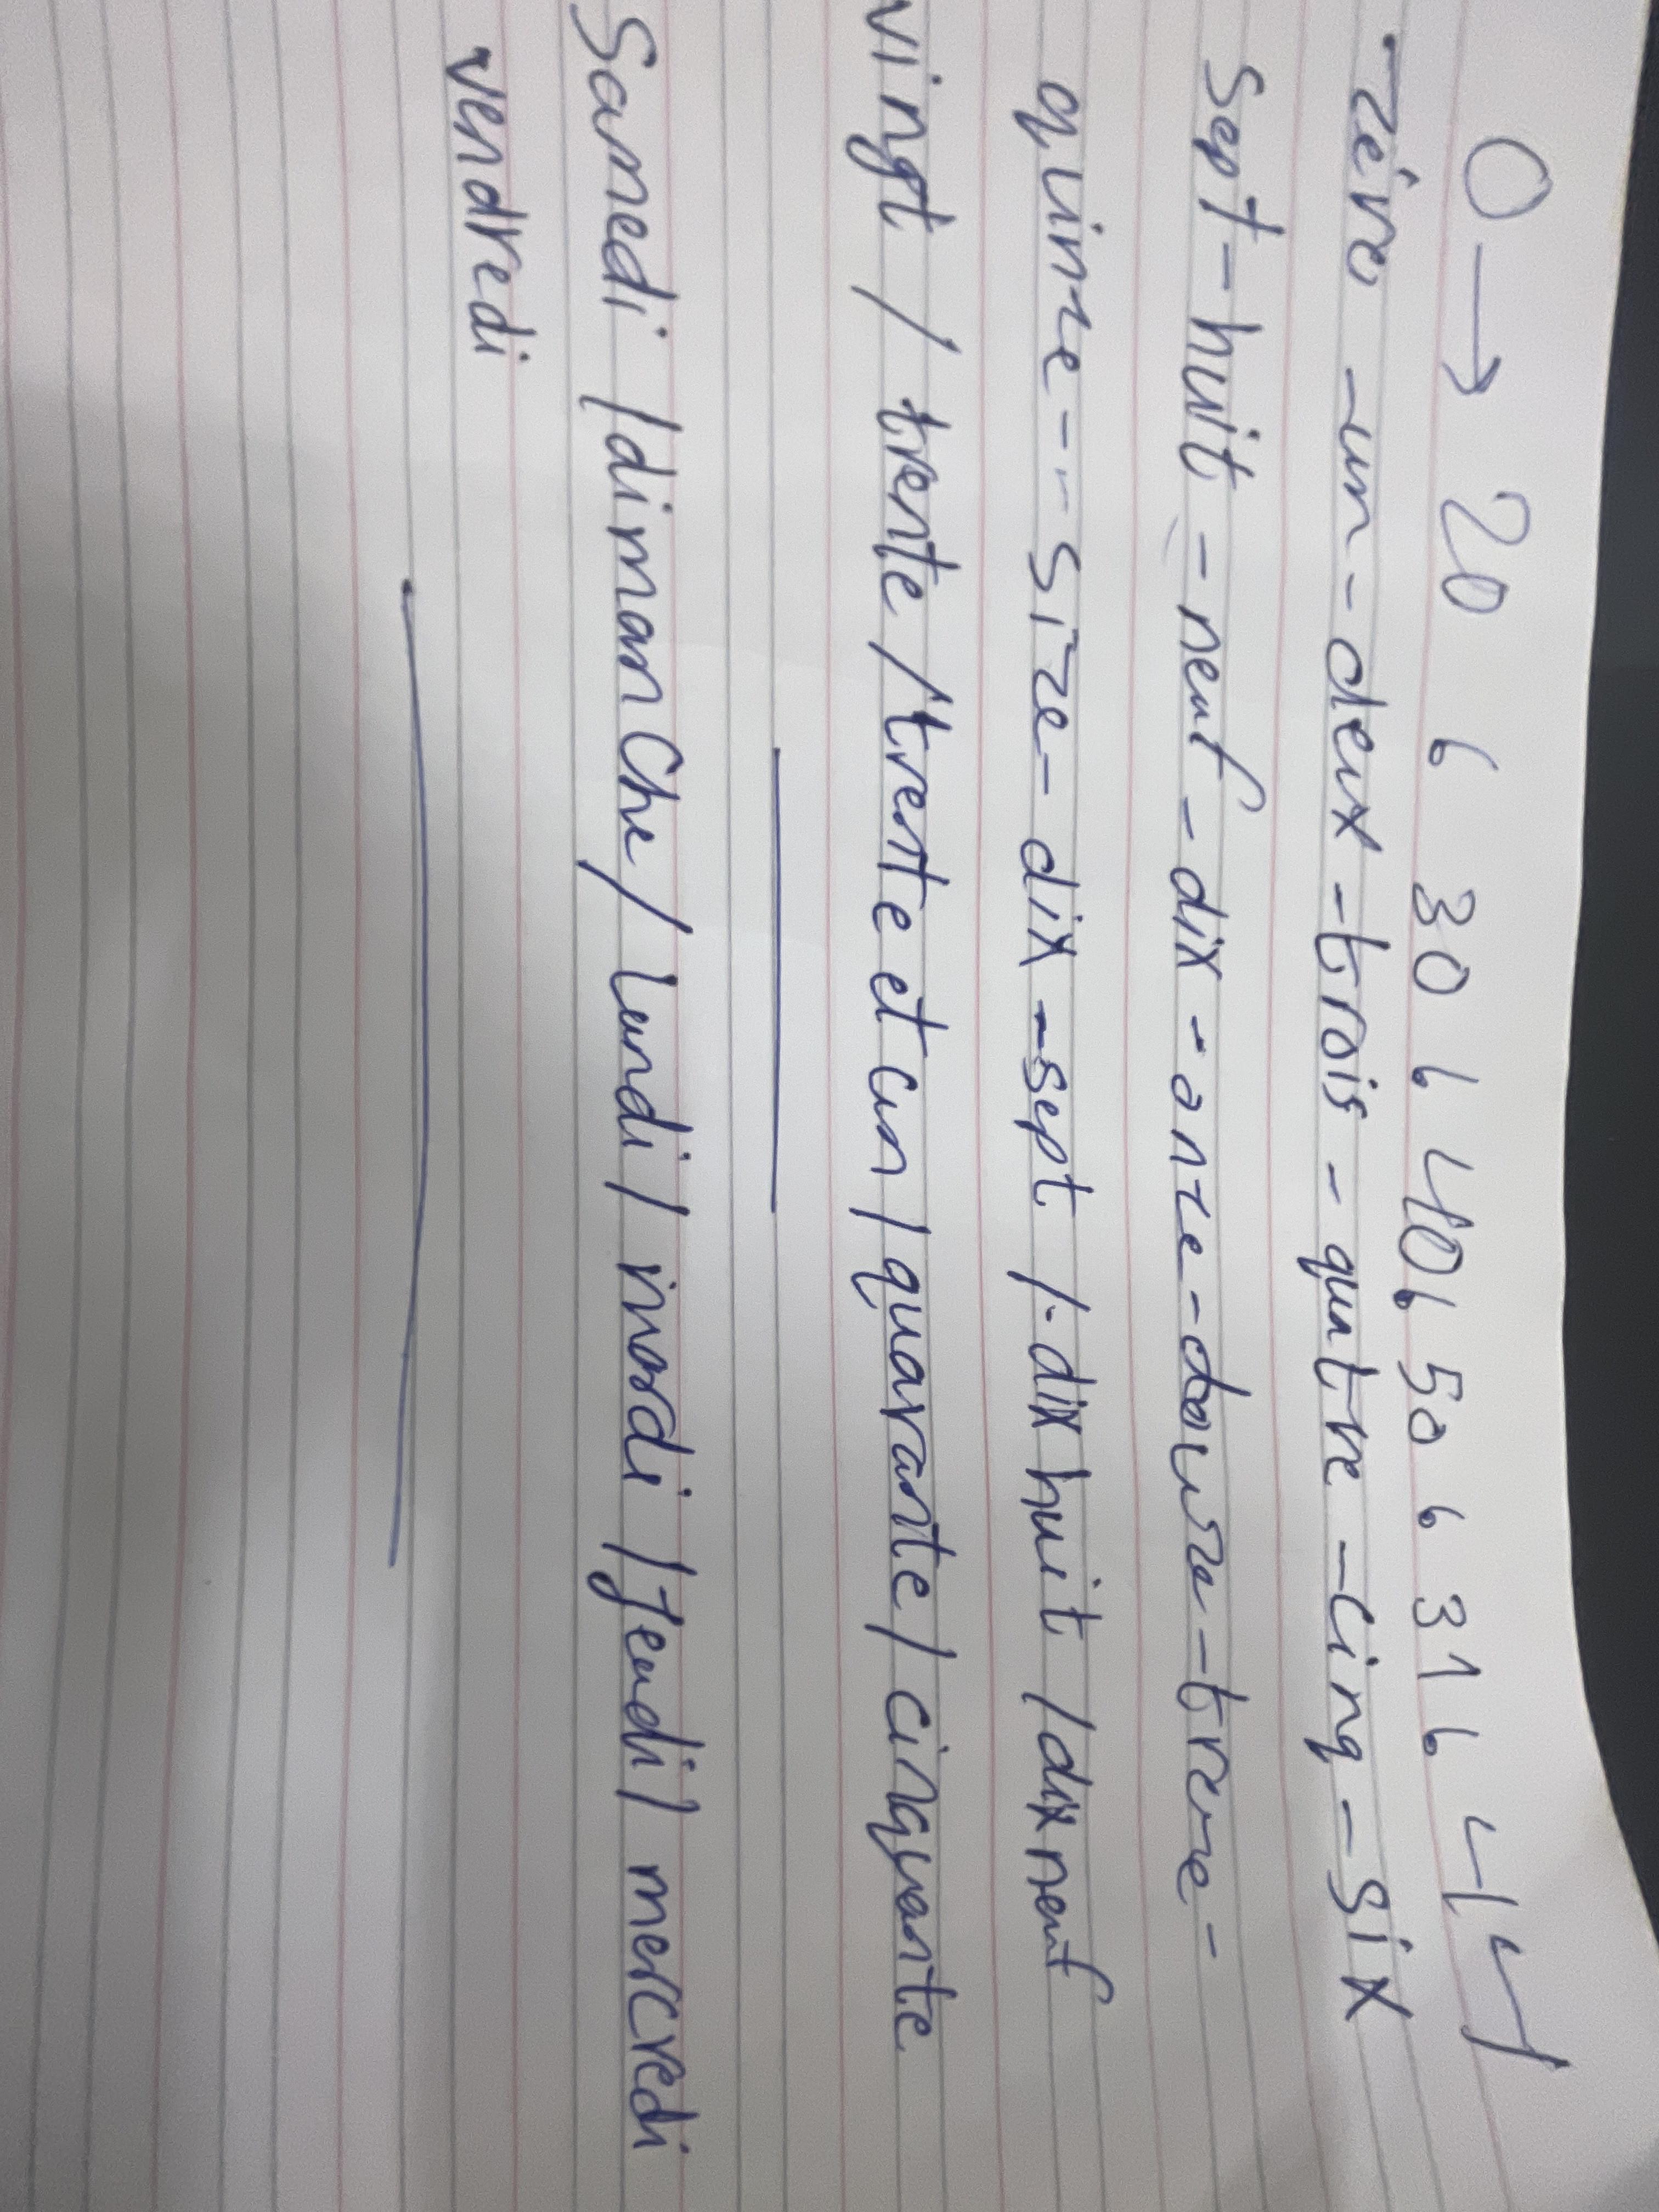 0 → 20 ، 30 ، 40 ، 50 ، 31 ، 44
zéro - un - deux - trois - quatre - cinq - Six
Sept - huit - neuf - dix - onze - douze - treze -
quinze - - Size - dix - sept / dix huit / dix neuf
vingt / trente / trente et un / quarante / cinquante
Samedi / dimanche / lundi / mardi / Jeudi / mercredi
vendredi